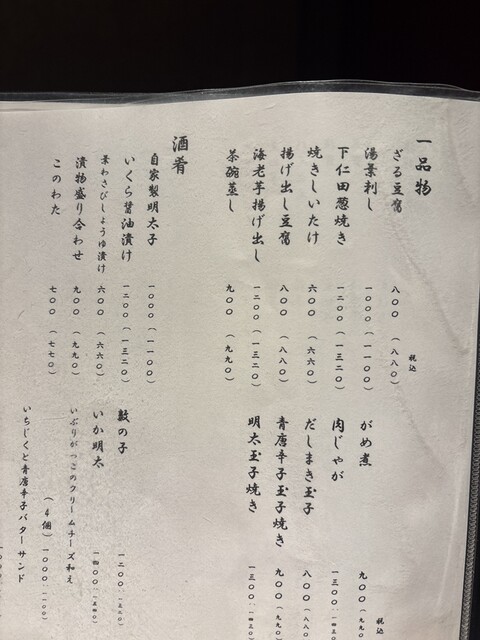 一品物
税込
ざる豆腐 八〇〇（八八〇）
湯葉刺し 一〇〇〇（一一〇〇）
下仁田葱焼き 一二〇〇（一三二〇）
焼きしいたけ 六〇〇（六六〇）
揚げ出し豆腐 八〇〇（八八〇）
海老芋揚げ出し 一二〇〇（一三二〇）
茶碗蒸し 九〇〇（九九〇）
税込
がめ煮 九〇〇（九九〇
肉じゃが 一三〇〇（一四三〇
だしまき玉子 八〇〇（八八
青唐辛子玉子焼き 九〇〇（九九
明太玉子焼き 一三〇〇（一四三
酒肴
自家製明太子 一〇〇〇（一一〇〇）
いくら醤油漬け 一二〇〇（一三二〇）
葉わさびしょうゆ漬け 六〇〇（六六〇）
漬物盛り合わせ 九〇〇（九九〇）
このわた 七〇〇（七七〇）
数の子 一二〇〇（一三二〇）
いか明太 一四〇〇（一五四〇）
いぶりがっこのクリームチーズ和え
（４個）一〇〇〇（一一〇〇）
いちじくと青唐辛子バターサンド